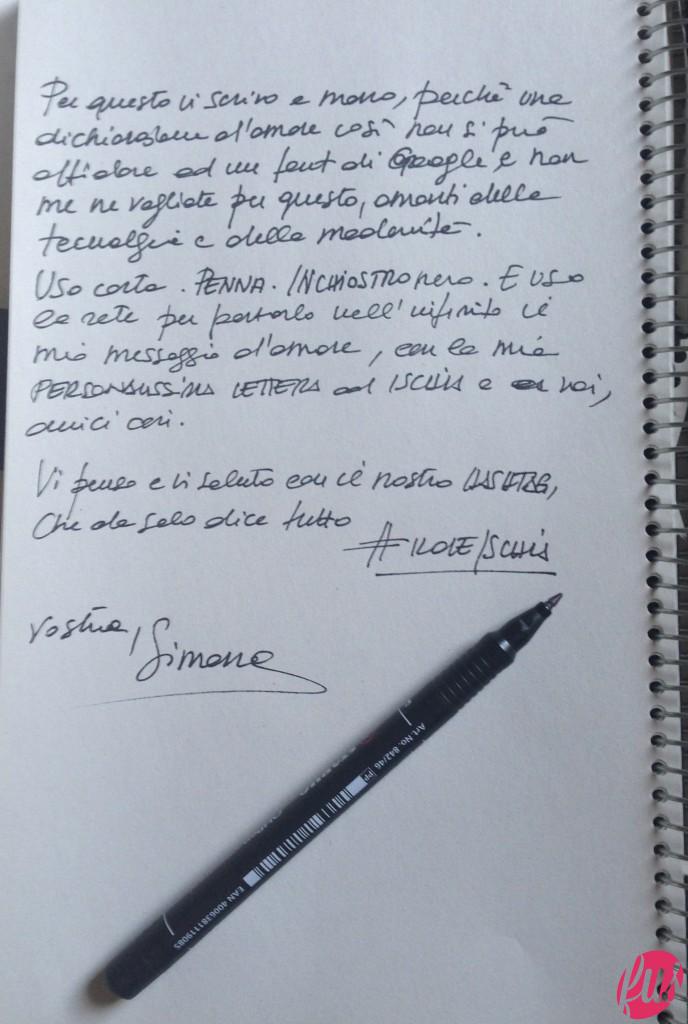 Per questo vi scrivo a mano, perchè una
dichiarazione d'amore così non si può
affidare ad un font di Google e non
me ne vogliate per questo, amanti della
tecnolgia e della modernità.
Uso carta. PENNA. INCHIOSTRO nero. E uso
la rete per portarlo nell'infinito il
mio messaggio d'amore, con la mia
PERSONALISSIMA LETTERA ad ISCHIA e a voi,
amici cari.
Vi penso e vi saluto con il nostro HASHTAG,
Che da solo dice tutto
vostra, Simona
Art.No.842/46 PP
EAN 4006381119085